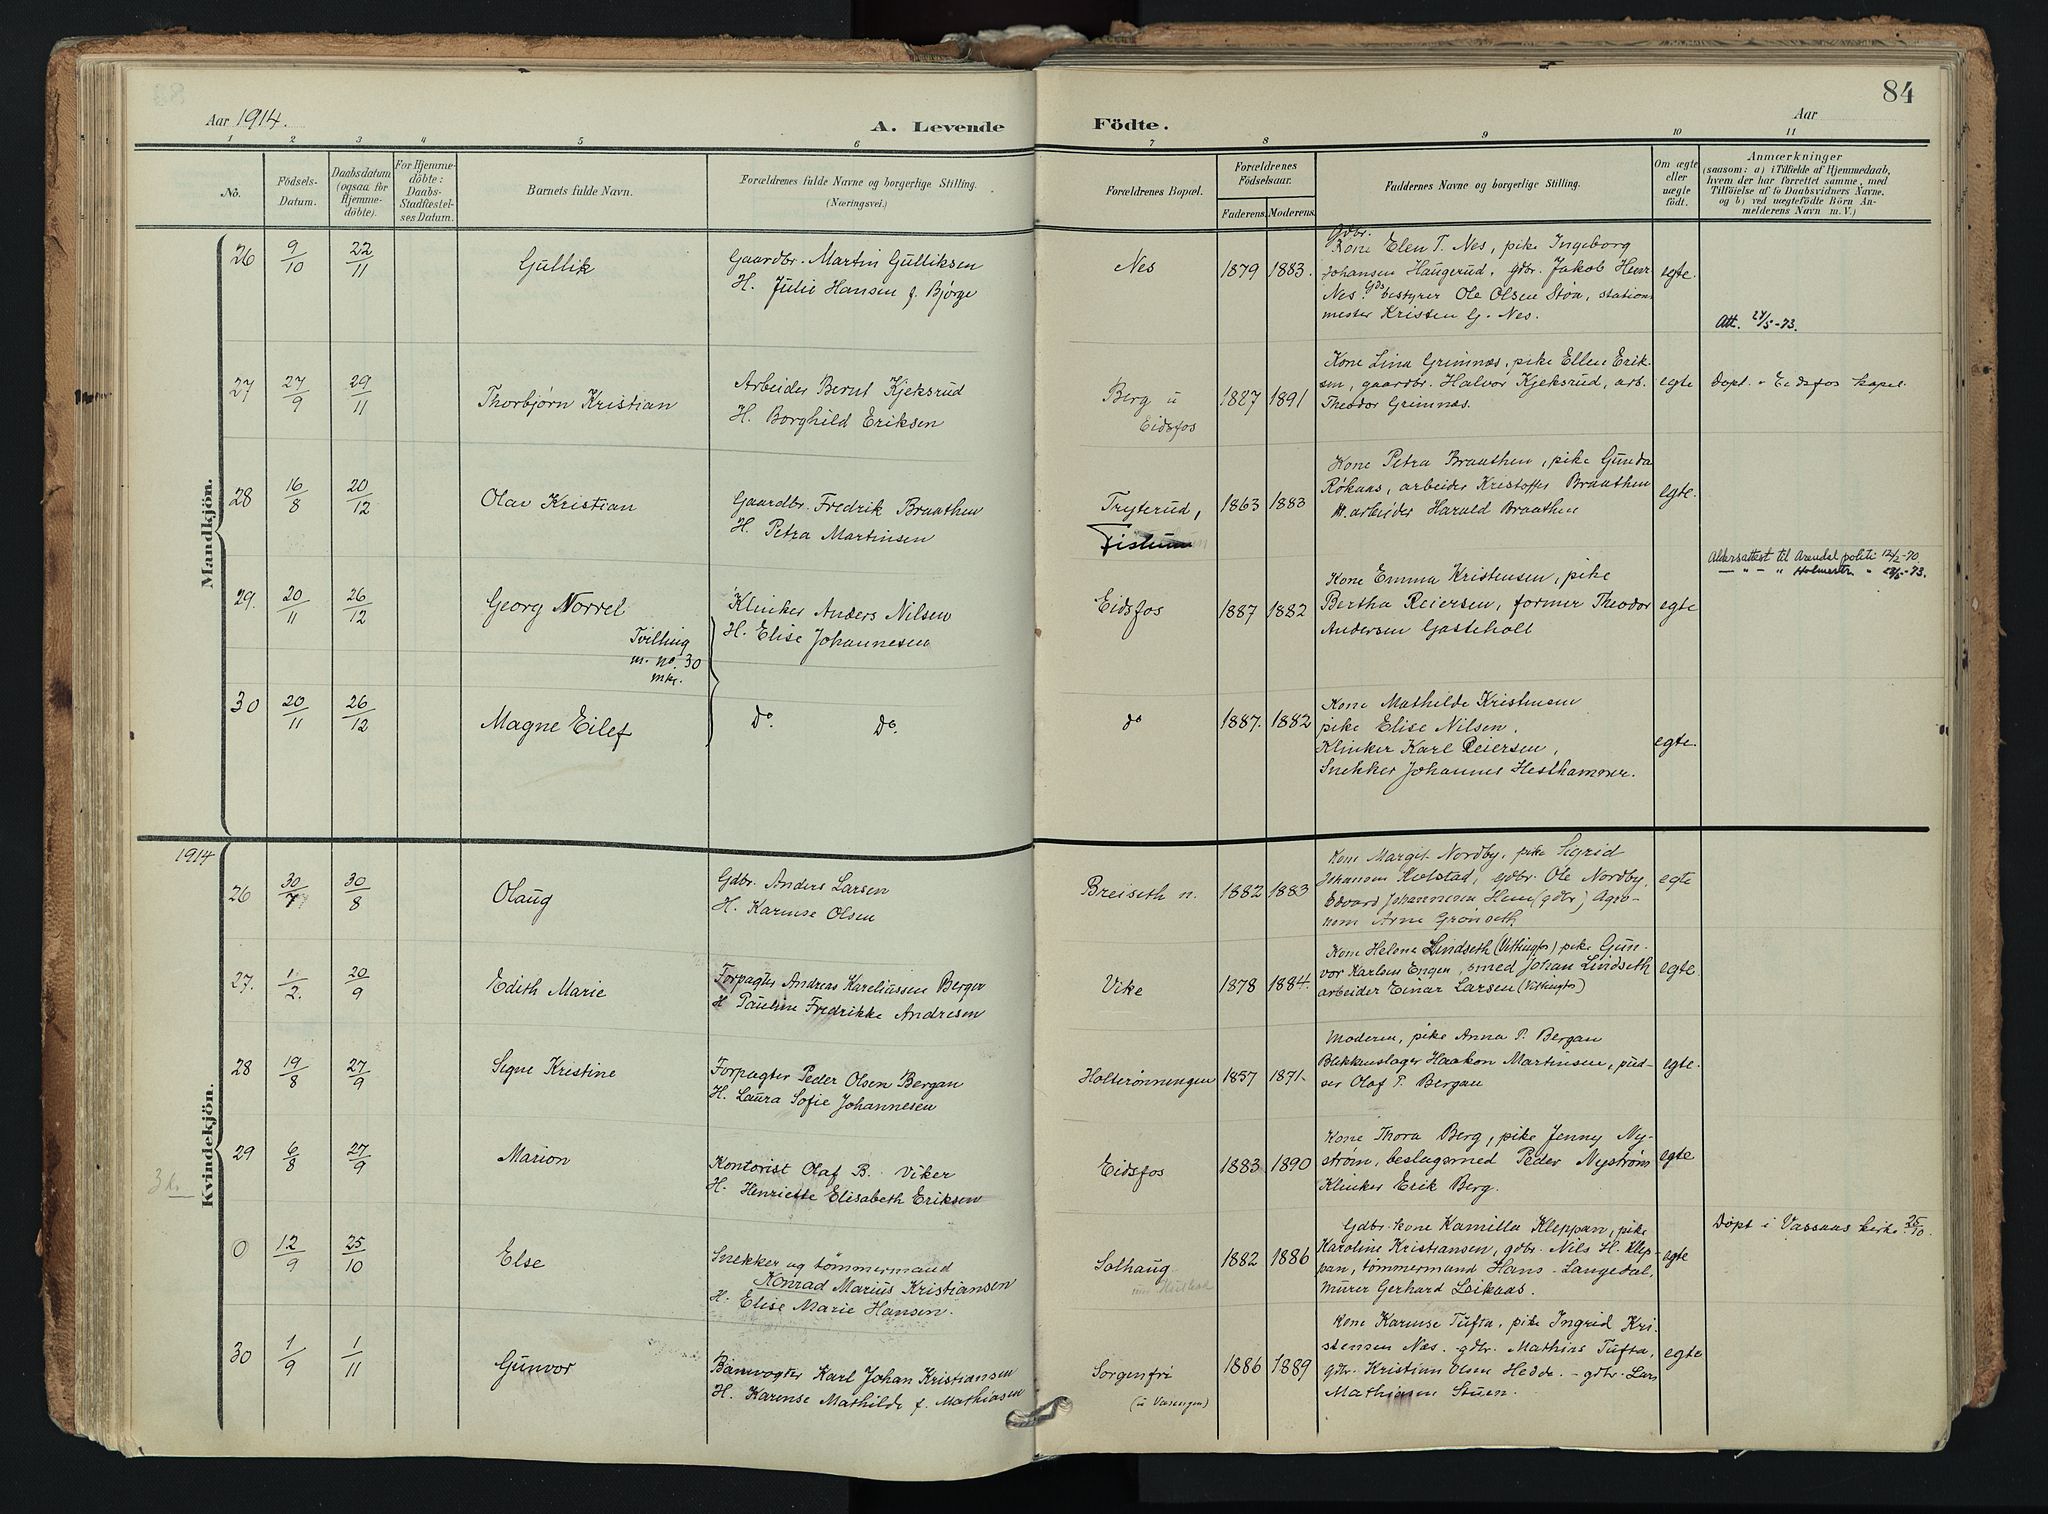 84
Aar 1914.
A. Levende Födte.
Aar
1 2 3 4 5 6 7 8 9 10 11
No.
Födsels-
Datum.
Daabsdatum
(ogsaa for
Hjemme-
döbte).
For Hjemme-
döbte:
Daabs-
Stadfæstel-
ses Datum.
Barnets fulde Navn.
Forældrenes fulde Navne og borgerlige Stilling.
(Næringsvei.)
Forældrenes Bopæl.
Forældrenes
Födselsaar.
Faderens. Moderens.
Faddernes Navne og borgerlige Stilling.
Om ægte
eller
uægte
födt.
Anmærkninger
(saasom: a) i Tilfælde af Hjemmedaab,
hvem der har forrettet samme, med
Tilföielse af to Daabsvidners Navne.
og b) ved uægtefödte Börn An-
melderens Navn m. V.)
Mandkjön.
26 9/10 22/11 Gullik
Gaardbr. Martin Gulliksen
H. Julie Hansen f. Bjørge
Nes 1879 1883.
Gdbr.
Kone Elen T. Nes, pike Ingeborg
Johansen Haugerud, gdbr. Jakob Henr
Nes. Gds bestyrer Ole Olsen Støa, stations
mester Kristen G. Nes.
egte.
Att. 24/5-73.
27 27/9 29/11 Thorbjørn Kristian
Arbeider Bernt Kjeksrud
H. Borghild Eriksen
Berg u
Eidsfos
1827 1891
Kone Lina Grimnæs, pike Ellen Erik-
sen, gaardbr. Halvor Kjeksrud, arb.
Theodor Grimnæs.
egte
Døpt i Eidsfos kapel.
28 16/8 20/12 Olav Kristian
Gaardbr. Fredrik Braathen
H. Petra Martinsen
Tryterud,
Fiskum
1863 1883
Kone Petra Braathen, pike Gunda
Røkaas, arbeider Kristoffer Braathen
arbeider Harald Braathen
egte.
29. 20/11 26/12 Georg Norrel
Tvilling
m. no. 30
mkj.
Klinker Anders Nilsen
H. Elise Johannesen
Eidsfos 1887 1882
Kone Emma Kristensen, pike
Bertha Reiersen, former Theodor
Andersen Gasteholt
egte
Aldersattest til Arendal politi 12/2-70
— " — " Holmestr. " 28/5-73.
30 20/11 26/12 Magne Eilef
Do. Do.
do 1887. 1882
Kone Mathilde Kristensen
pike Elise Nilsen.
Klinker Karl Reiersen,
Snekker Johannes Hesthammer.
egte.
1914
Kvindekjön.
26 30/7 30/8 Olaug
Gdbr. Anders Larsen
H. Karense Olsen
Breiseth n. 1882 1883
Kone Margit Nordby, pike Sigrid
Johansen Kolstad, gdbr. Ole Nordby,
Edvard Johannesen Hem (gdbr) Agro-
nom Arne Grønseth
egte
27. 1/2. 20/9 Edith Marie
Forpagter Andreas Kareliussen Berger
H Pauline Fredrikke Andresen
Vike 1878 1884.
Kone Helene Lindseth (Vittingfos) pike Gun-
vor Karlsen Engen, smed Johan Lindseth
arbeider Einar Larsen (Vittingfos)
egte.
28 19/8 27/9 Signe Kristine
Forpagter Peder Olsen Bergan
H. Laura Sofie Johannesen
Holterønningen 1857 1871-
Moderen, pike Anna P. Bergan
Blikkenslager Haakon Martinsen, pud-
ser Olaf P. Bergan
egte.
29 6/8 27/9 Marion
Kontorist Olaf B. Viker
H. Henriette Elisabeth Eriksen
Eidsfos 1883 1890
Kone Thora Berg, pike Jenny Ny-
strøm, beslagsmed Peder Nystrøm
Klinker Erik Berg.
egte
3 k.
0 12/9 25/10 Else
Snekker og tømmermand
Konrad Marius Kristiansen
H. Elise Marie Hansen.
Solhaug
1882 1886
Gdbr. kone Kamilla Kleppan, pike
Karoline Kristiansen, gdbr. Nils H. Klep-
pan, tømmermand Hans Langedal,
Murer Gerhard Leikaas.
egte
Døpt i Vassaas kirke. 25/10.
30 1/9 1/11 Gunvor
Banevogter Karl Johan Kristiansen
H. Karense Mathilde f. Mathiasen
Sorgenfri
(u Vasengen)
1886 1889
Kone Karense Tufta, pike Ingrid Kri-
stensen Næs. gdbr. Mathias Tufta,
gdbr. Kristian Olsen Hedda. - gdbr. Lars
Mathiasen Stuen.
egte